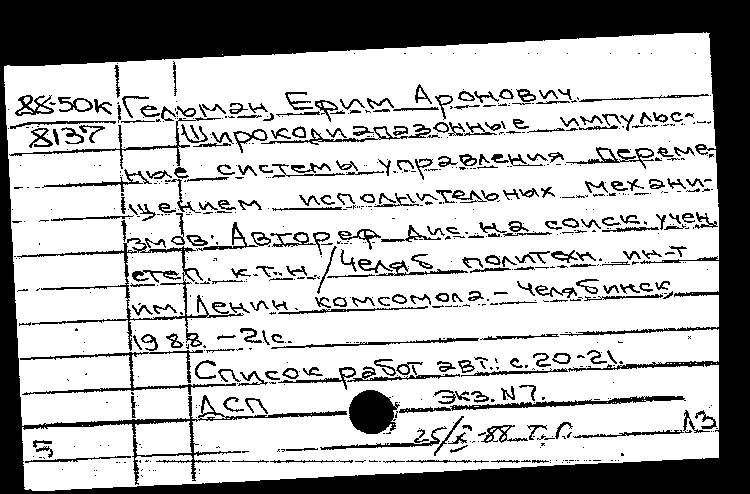 88-50к Гельман, Ефим Аронович.
8137 Широкодиапазонные импульс-
ные системы управления переме-
щением исполнительных механи-
змов: Автореф дис. на соиск. учен.
степ. к.т.н. / Челяб. политехн. ин-т
им. Ленин. комсомола. - Челябинск,
1988. - 21с.
Список работ авт.: с. 20-21.
ДСП Экз. N 7.
25/X-88 Т.П. ЛЗ
5